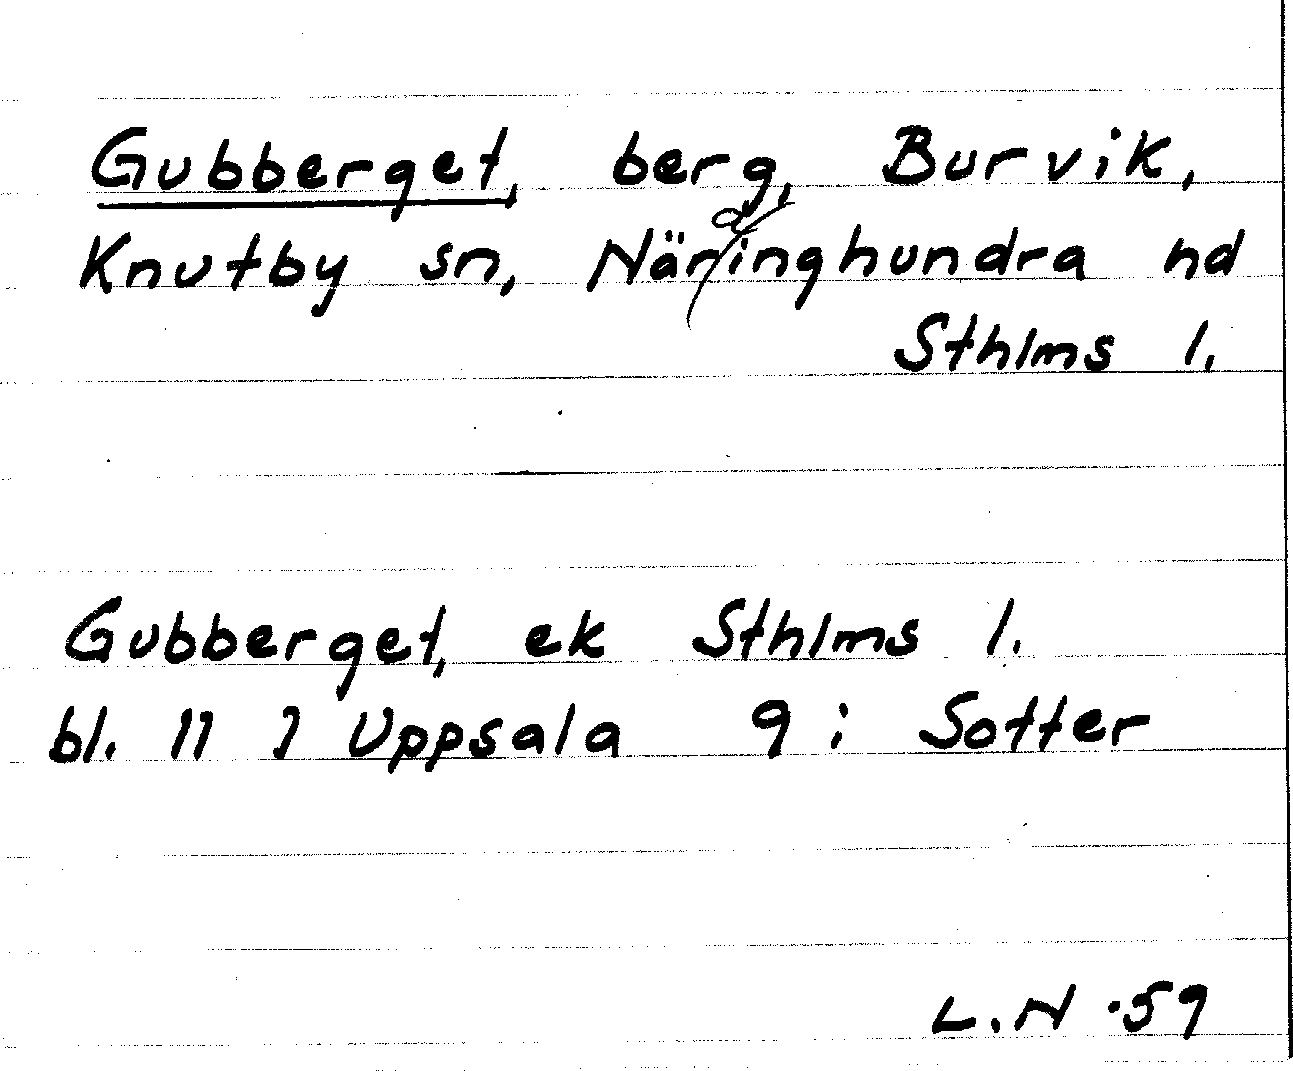 Gubberget, berg, Burvik,
Knutby sn, Närdinghundra hd
Sthlms l.
Gubberget, ek Sthlms l.
bl. 11 I Uppsala 9 i Sotter
L.N -59